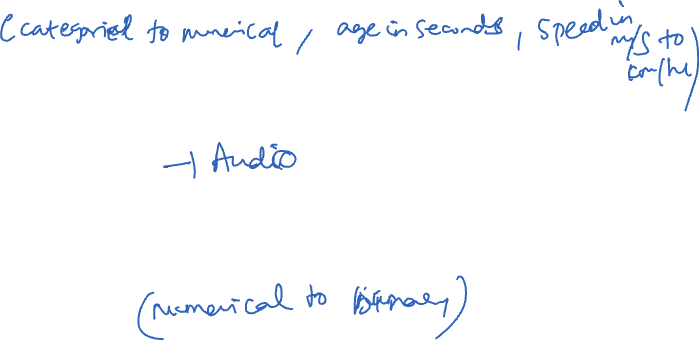 (categorical to numerical / age in seconds, speed in m/s to km/hr)
→ Audio
(numerical to binary)